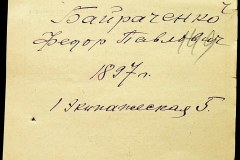 Байраченко
Федор Павлович
1897 г.
1 Экипажеская Б.